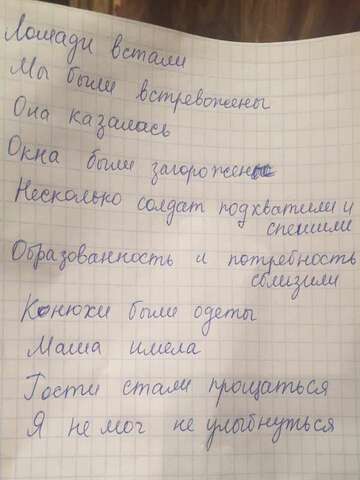 Лошади встали
Мы были встревожены
Она казалась
Окна были загорожены
Несколько солдат подхватили и
спешили
Образованность и потребность
сблизили
Конюхи были одеты
Маша имела
Гости стали прощаться
Я не мог не улыбнуться